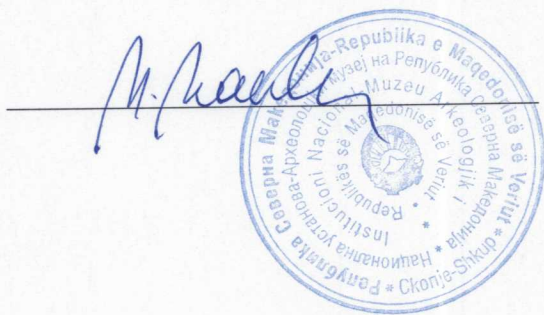 Република Северна Македонија-Republika e Maqedonisë së Veriut * Скопје-Shkup *
Национална установа-Археолошки музеј на Република Северна Македонија *
Institucioni Nacional Muzeu Arkeologjik i
Republikës së Maqedonisë së Veriut *